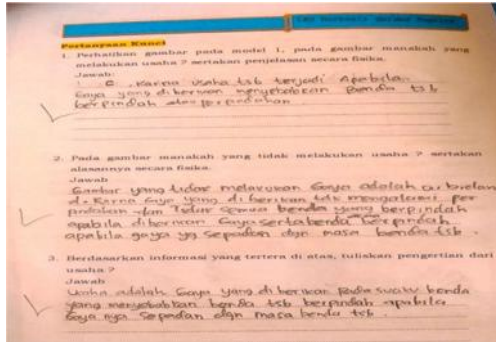 Pertanyaan Kunci
1. Perhatikan gambar pada model 1, pada gambar manakah yang
melakukan usaha ? sertakan penjelasan secara fisika.
Jawab:
C, Karna usaha tsb terjadi Apabila
Gaya yang diberikan menyebabkan Benda tsb
berpindah atau perpindahan
2. Pada gambar manakah yang tidak melakukan usaha ? sertakan
alasannya secara fisika.
Jawab
Gambar yang tidak melakukan Gaya adalah
Karna Gaya yang diberikan tdk mengalami per
pindahan dan Tidak semua benda yang berpindah
apabila diberikan Gaya serta benda berpindah
apabila gaya yg sepadan dgn masa benda tsb.
3. Berdasarkan informasi yang tertera di atas, tuliskan pengertian dari
usaha ?
Jawab
Usaha adalah Gaya yang diberikan Pada suatu benda
yang menyebabkan benda tsb berpindah apabila
Gaya nya sepadan dgn masa benda tsb.